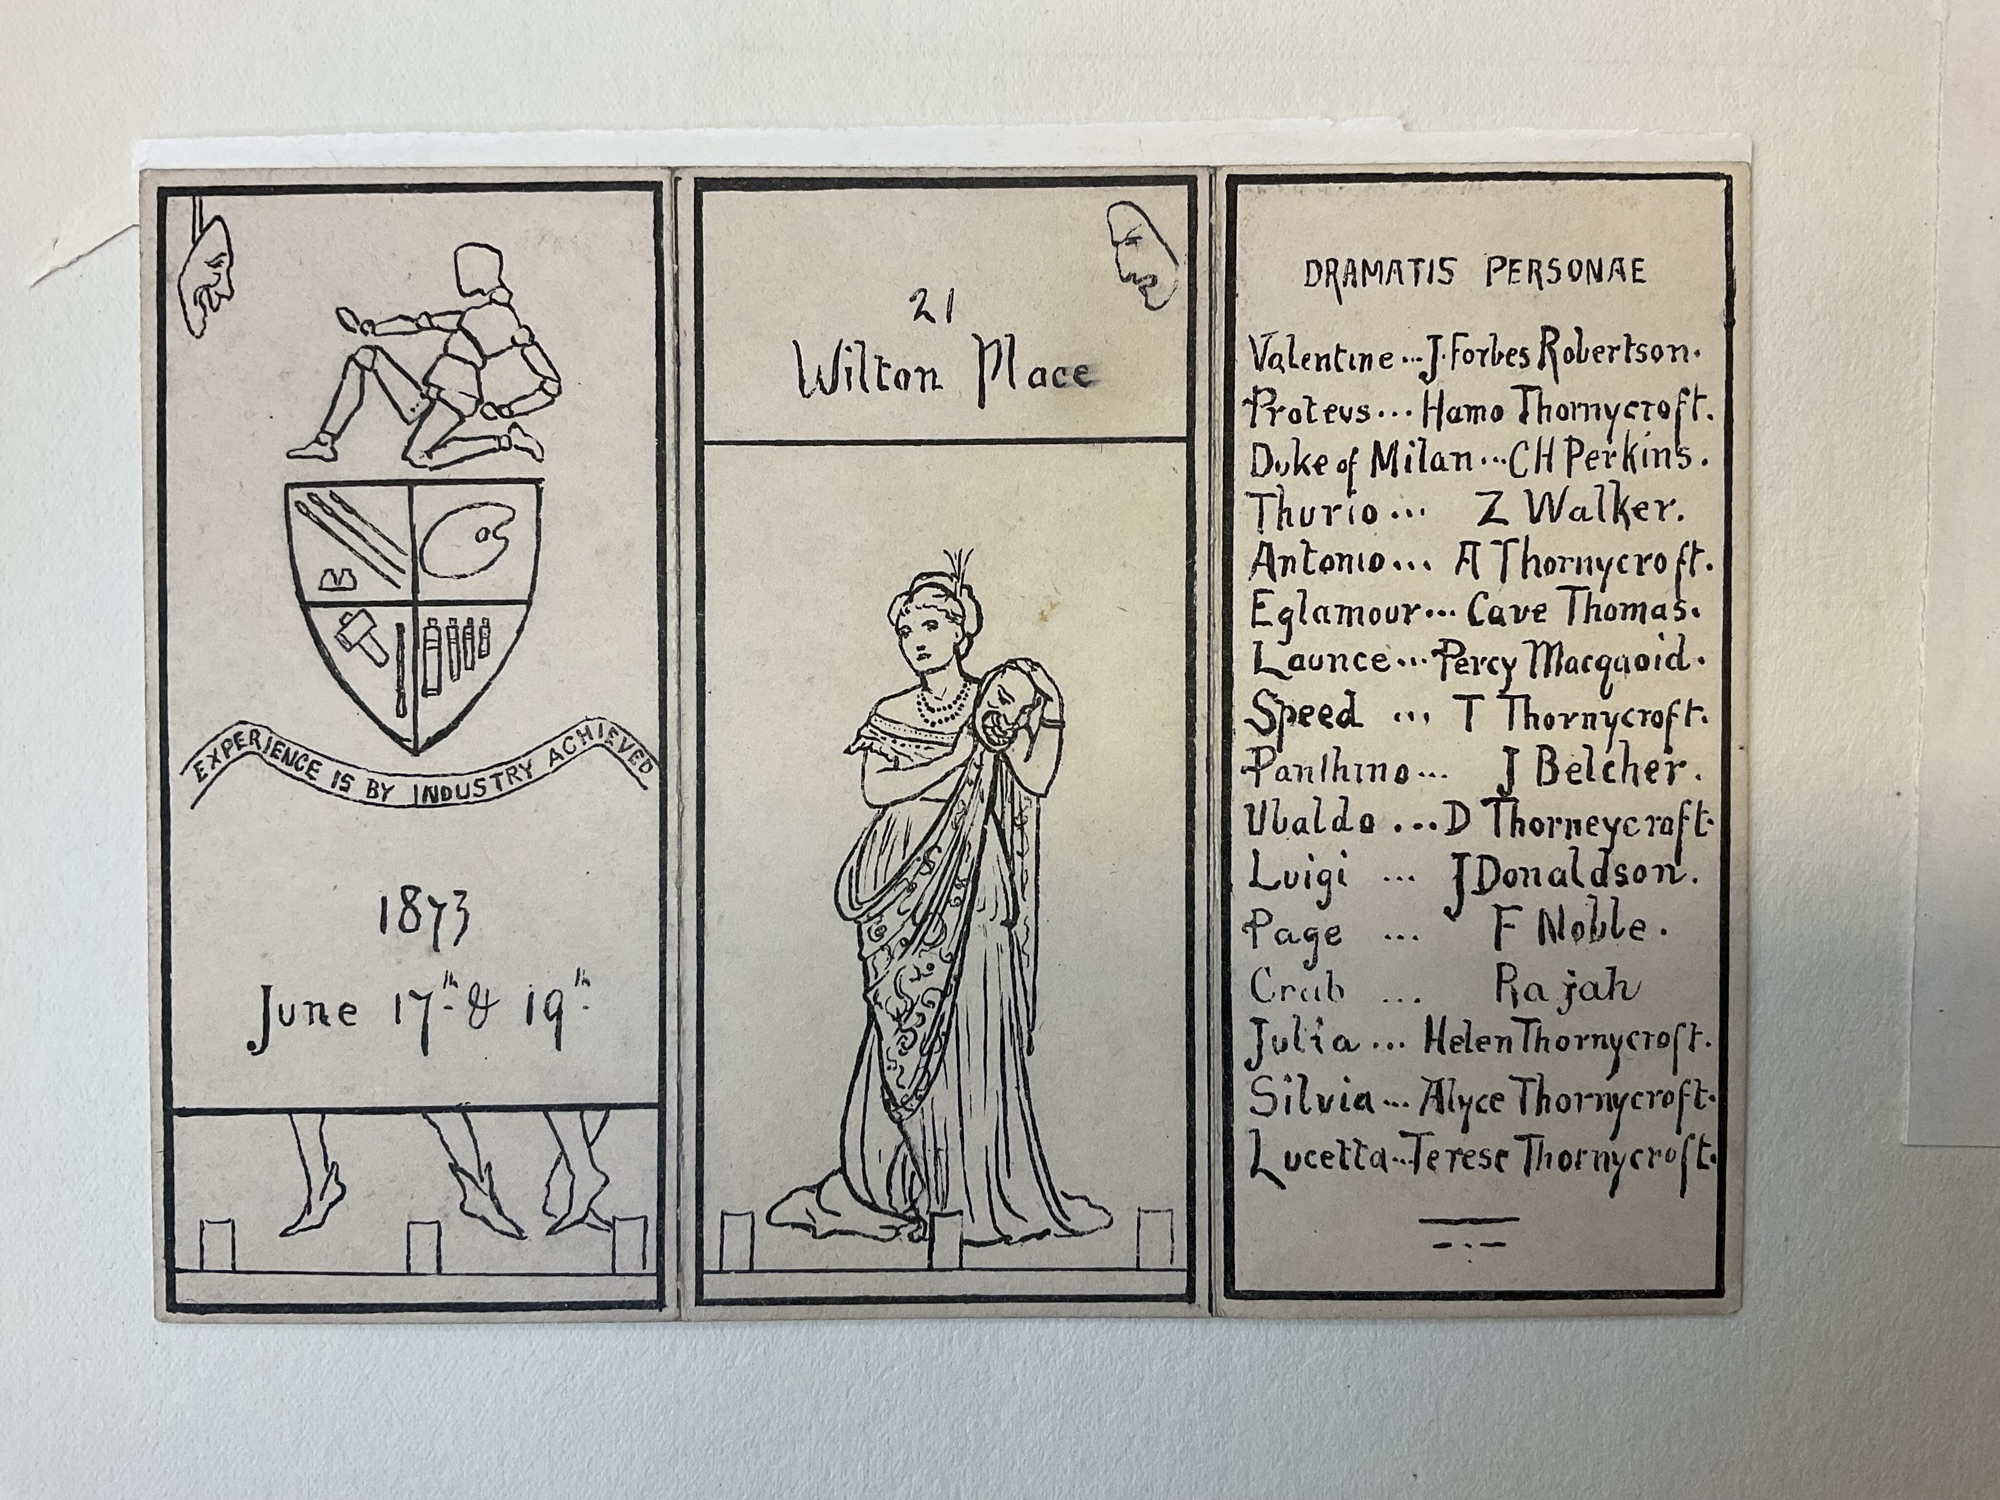 EXPERIENCE IS BY INDUSTRY ACHIEVED
1873
June 17th & 19th
21
Wilton Place
DRAMATIS PERSONAE
Valentine... J. Forbes Robertson.
Proteus... Hamo Thornycroft.
Duke of Milan... CH Perkins.
Thurio... Z Walker.
Antonio... A Thornycroft.
Eglamour... Cave Thomas.
Launce... Percy Macquoid.
Speed ... T Thornycroft.
Panthino... J Belcher.
Ubaldo ... D Thorneycroft.
Luigi ... J Donaldson.
Page ... F Noble.
Crab ... Rajah
Julia... Helen Thornycroft.
Silvia... Alyce Thornycroft.
Lucetta... Terese Thornycroft.